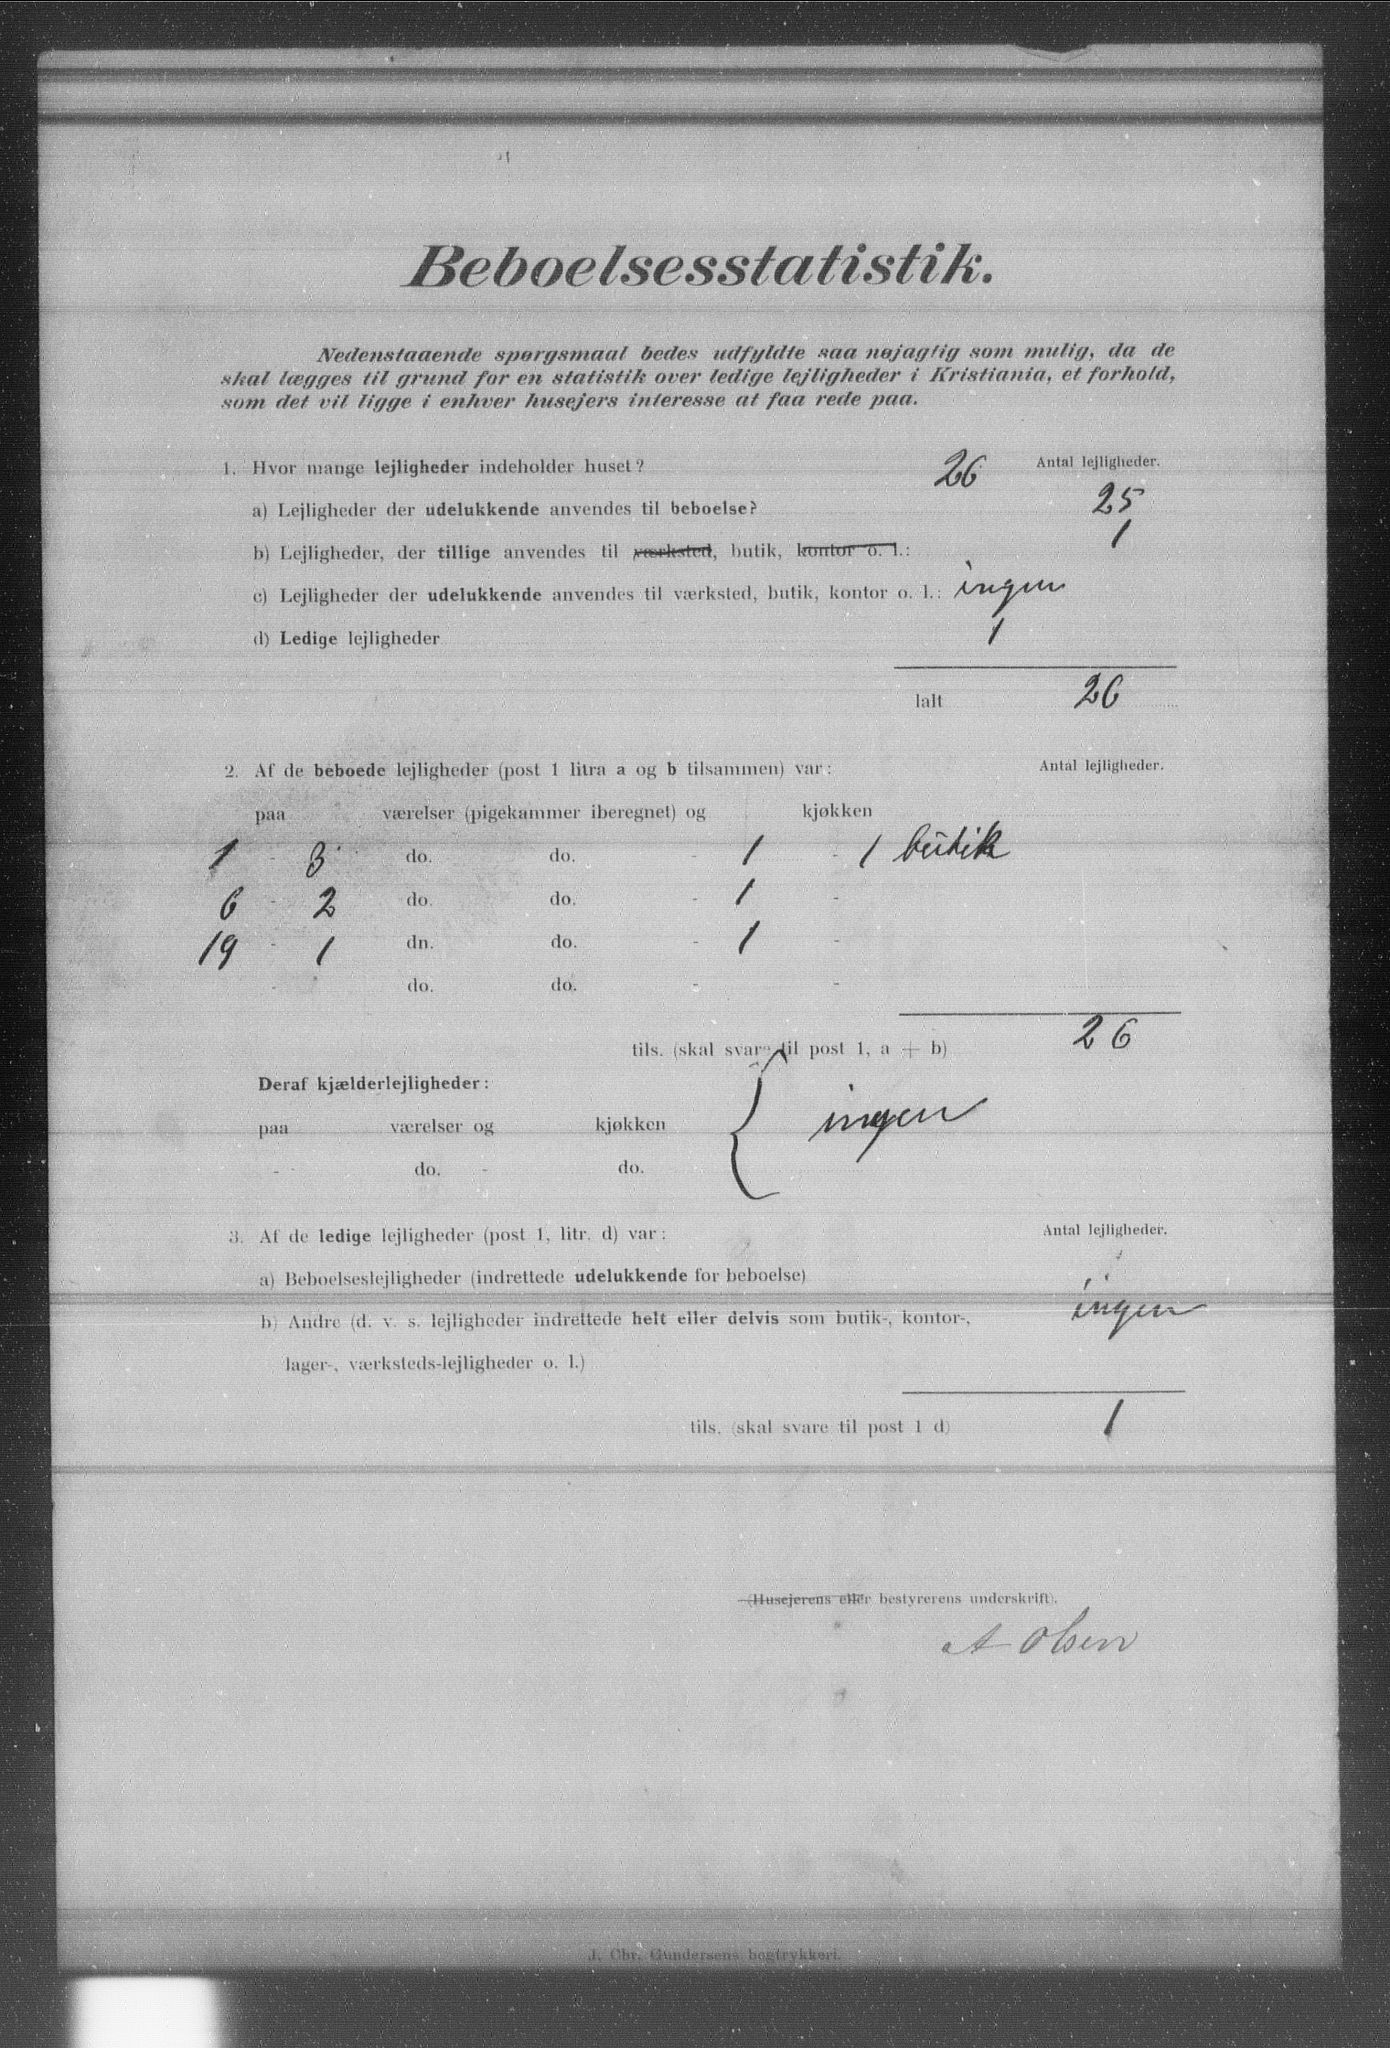 Beboelsesstatistik.
Nedenstaaende spørgsmaal bedes udfyldte saa nøjagtig som mulig, da de
skal lægges til grund for en statistik over ledige lejligheder i Kristiania, et forhold,
som det vil ligge i enhver husejers interesse at faa rede paa.
1. Hvor mange lejligheder indeholder huset? 26 Antal lejligheder.
a) Lejligheder der udelukkende anvendes til beboelse? 25
b) Lejligheder, der tillige anvendes til værksted, butik, kontor o. l.: 1
c) Lejligheder der udelukkende anvendes til værksted, butik, kontor o. l.: ingen
d) Ledige lejligheder 1
Ialt 26
2. Af de beboede lejligheder (post 1 litra a og b tilsammen) var: Antal lejligheder.
paa værelser (pigekammer iberegnet) og kjøkken
1 - 3 do. do. - 1 - 1 butik
6 - 2 do. do. - 1 -
19 - 1 dn. do. - 1 -
- do. do. - -
tils. (skal svare til post 1, a + b) 26
Deraf kjælderlejligheder:
paa værelser og kjøkken ingen
- do. - do.
3. Af de ledige lejligheder (post 1, litr. d) var: Antal lejligheder.
a) Beboelseslejligheder (indrettede udelukkende for beboelse)
b) Andre (d. v. s. lejligheder indrettede helt eller delvis som butik-, kontor-, ingen
lager-, værksteds-lejligheder o. l.)
tils. (skal svare til post 1 d) 1
(Husejerens eller bestyrerens underskrift).
A Olsen
J. Chr. Gundersens bogtrykkeri.